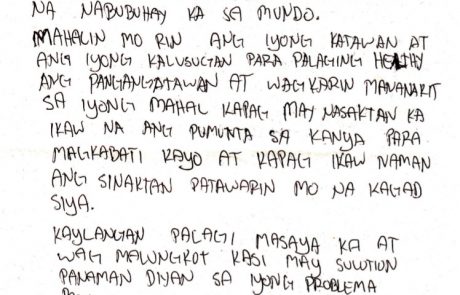 NA NABUBUHAY KA SA MUNDO.
MAHALIN MO RIN ANG IYONG KATAWAN AT
ANG IYONG KALUSUGTAN PARA PALAGING HEALTHY
ANG PANGANGATAWAN AT WAGKARIN MANANAKIT
SA IYONG MAHAL KAPAG MAY NASAKTAN KA
IKAW NA ANG PUMUNTA SA KANYA PARA
MAGKABATI KAYO AT KAPAG IKAW NAMAN
ANG SINAKTAN PATAWARIN MO NA KAGAD
SIYA.
KAYLANGAN PALAGI MASAYA KA AT
WAG MALUNGKOT KASI MAY SULUTION
PANAMAN DIYAN SA IYONG PROBLEMA